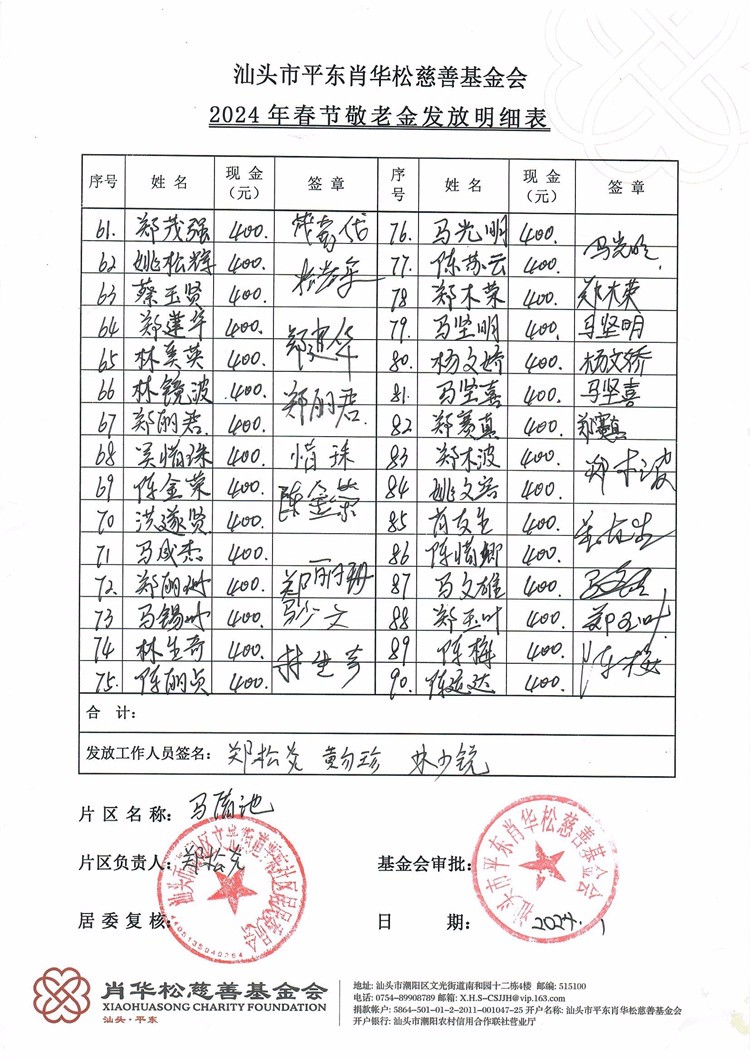 汕头市平东肖华松慈善基金会
2024年春节敬老金发放明细表
序号 姓名 现金（元） 签章 序号 姓名 现金（元） 签章
61. 郑茂强 400. 76. 马光明 400. 马光明
62 姚松辉 400. 77. 陈苏云 400.
63 蔡玉贤 400. 78 郑木荣 400. 郑木荣
64 郑建华 400. 79. 马坚明 400. 马坚明
65 林美英 400. 80. 杨文娇 400. 杨文娇
66 林镜波 400. 郑丽君 81. 马坚喜 400. 马坚喜
67 郑丽君 400. 82 郑赛真 400. 郑赛真
68 吴惜珠 400. 惜珠 83 郑木波 400. 郑木波
69 陈金荣 400. 陈金荣 84 姚文 400.
70 洪遂贤 400. 85 400.
71 马成杰 400. 86 陈惜卿 400.
72. 郑丽珊 400. 郑丽珊 87 马文雄 400.
73 马锡 400. 88 郑玉叶 400. 郑玉叶
74 林生奇 400. 林生奇 89 陈梅 400. 陈梅
75. 陈丽贞 400. 90. 陈运达 400.
合 计：
发放工作人员签名： 郑松炎 林少锐
片区名称：
片区负责人：
基金会审批：
居委复核：
日 期： 2024.1
汕头市平东肖华松慈善基金会
肖华松慈善基金会
XIAOHUASONG CHARITY FOUNDATION
汕头·平东
地址: 汕头市潮阳区文光街道南和园十二栋4楼 邮编: 515100
电话: 0754-89908789 邮箱: X.H.S-CSJJH@vip.163.com
捐款帐户: 5864-501-01-2-2011-001047-25 开户名称: 汕头市平东肖华松慈善基金会
开户银行: 汕头市潮阳农村信用合作联社营业厅